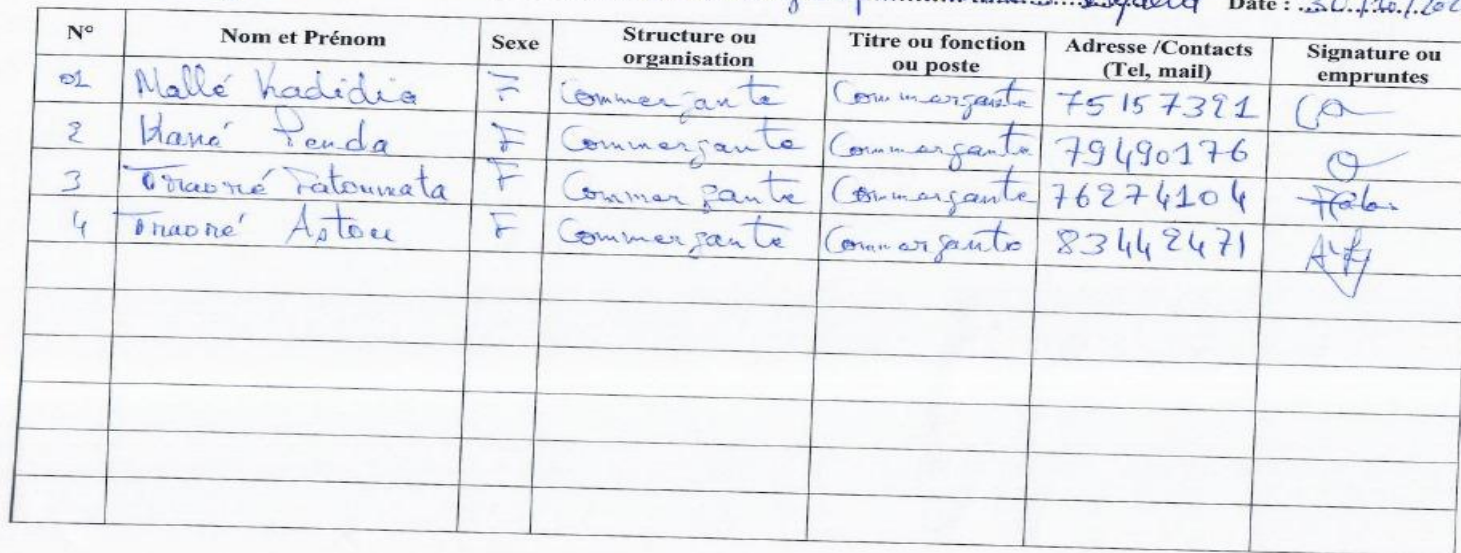 Date : 30/10/202
N° Nom et Prénom Sexe Structure ou organisation Titre ou fonction ou poste Adresse /Contacts (Tel, mail) Signature ou empruntes
01 Mallé Kadidia F Commerçante Commerçante 75157391
2 Kané Penda F Commerçante Commerçante 79490176
3 Traoré Fatoumata F Commerçante Commerçante 76274104
4 Traoré Astou F Commerçante Commerçante 83442471